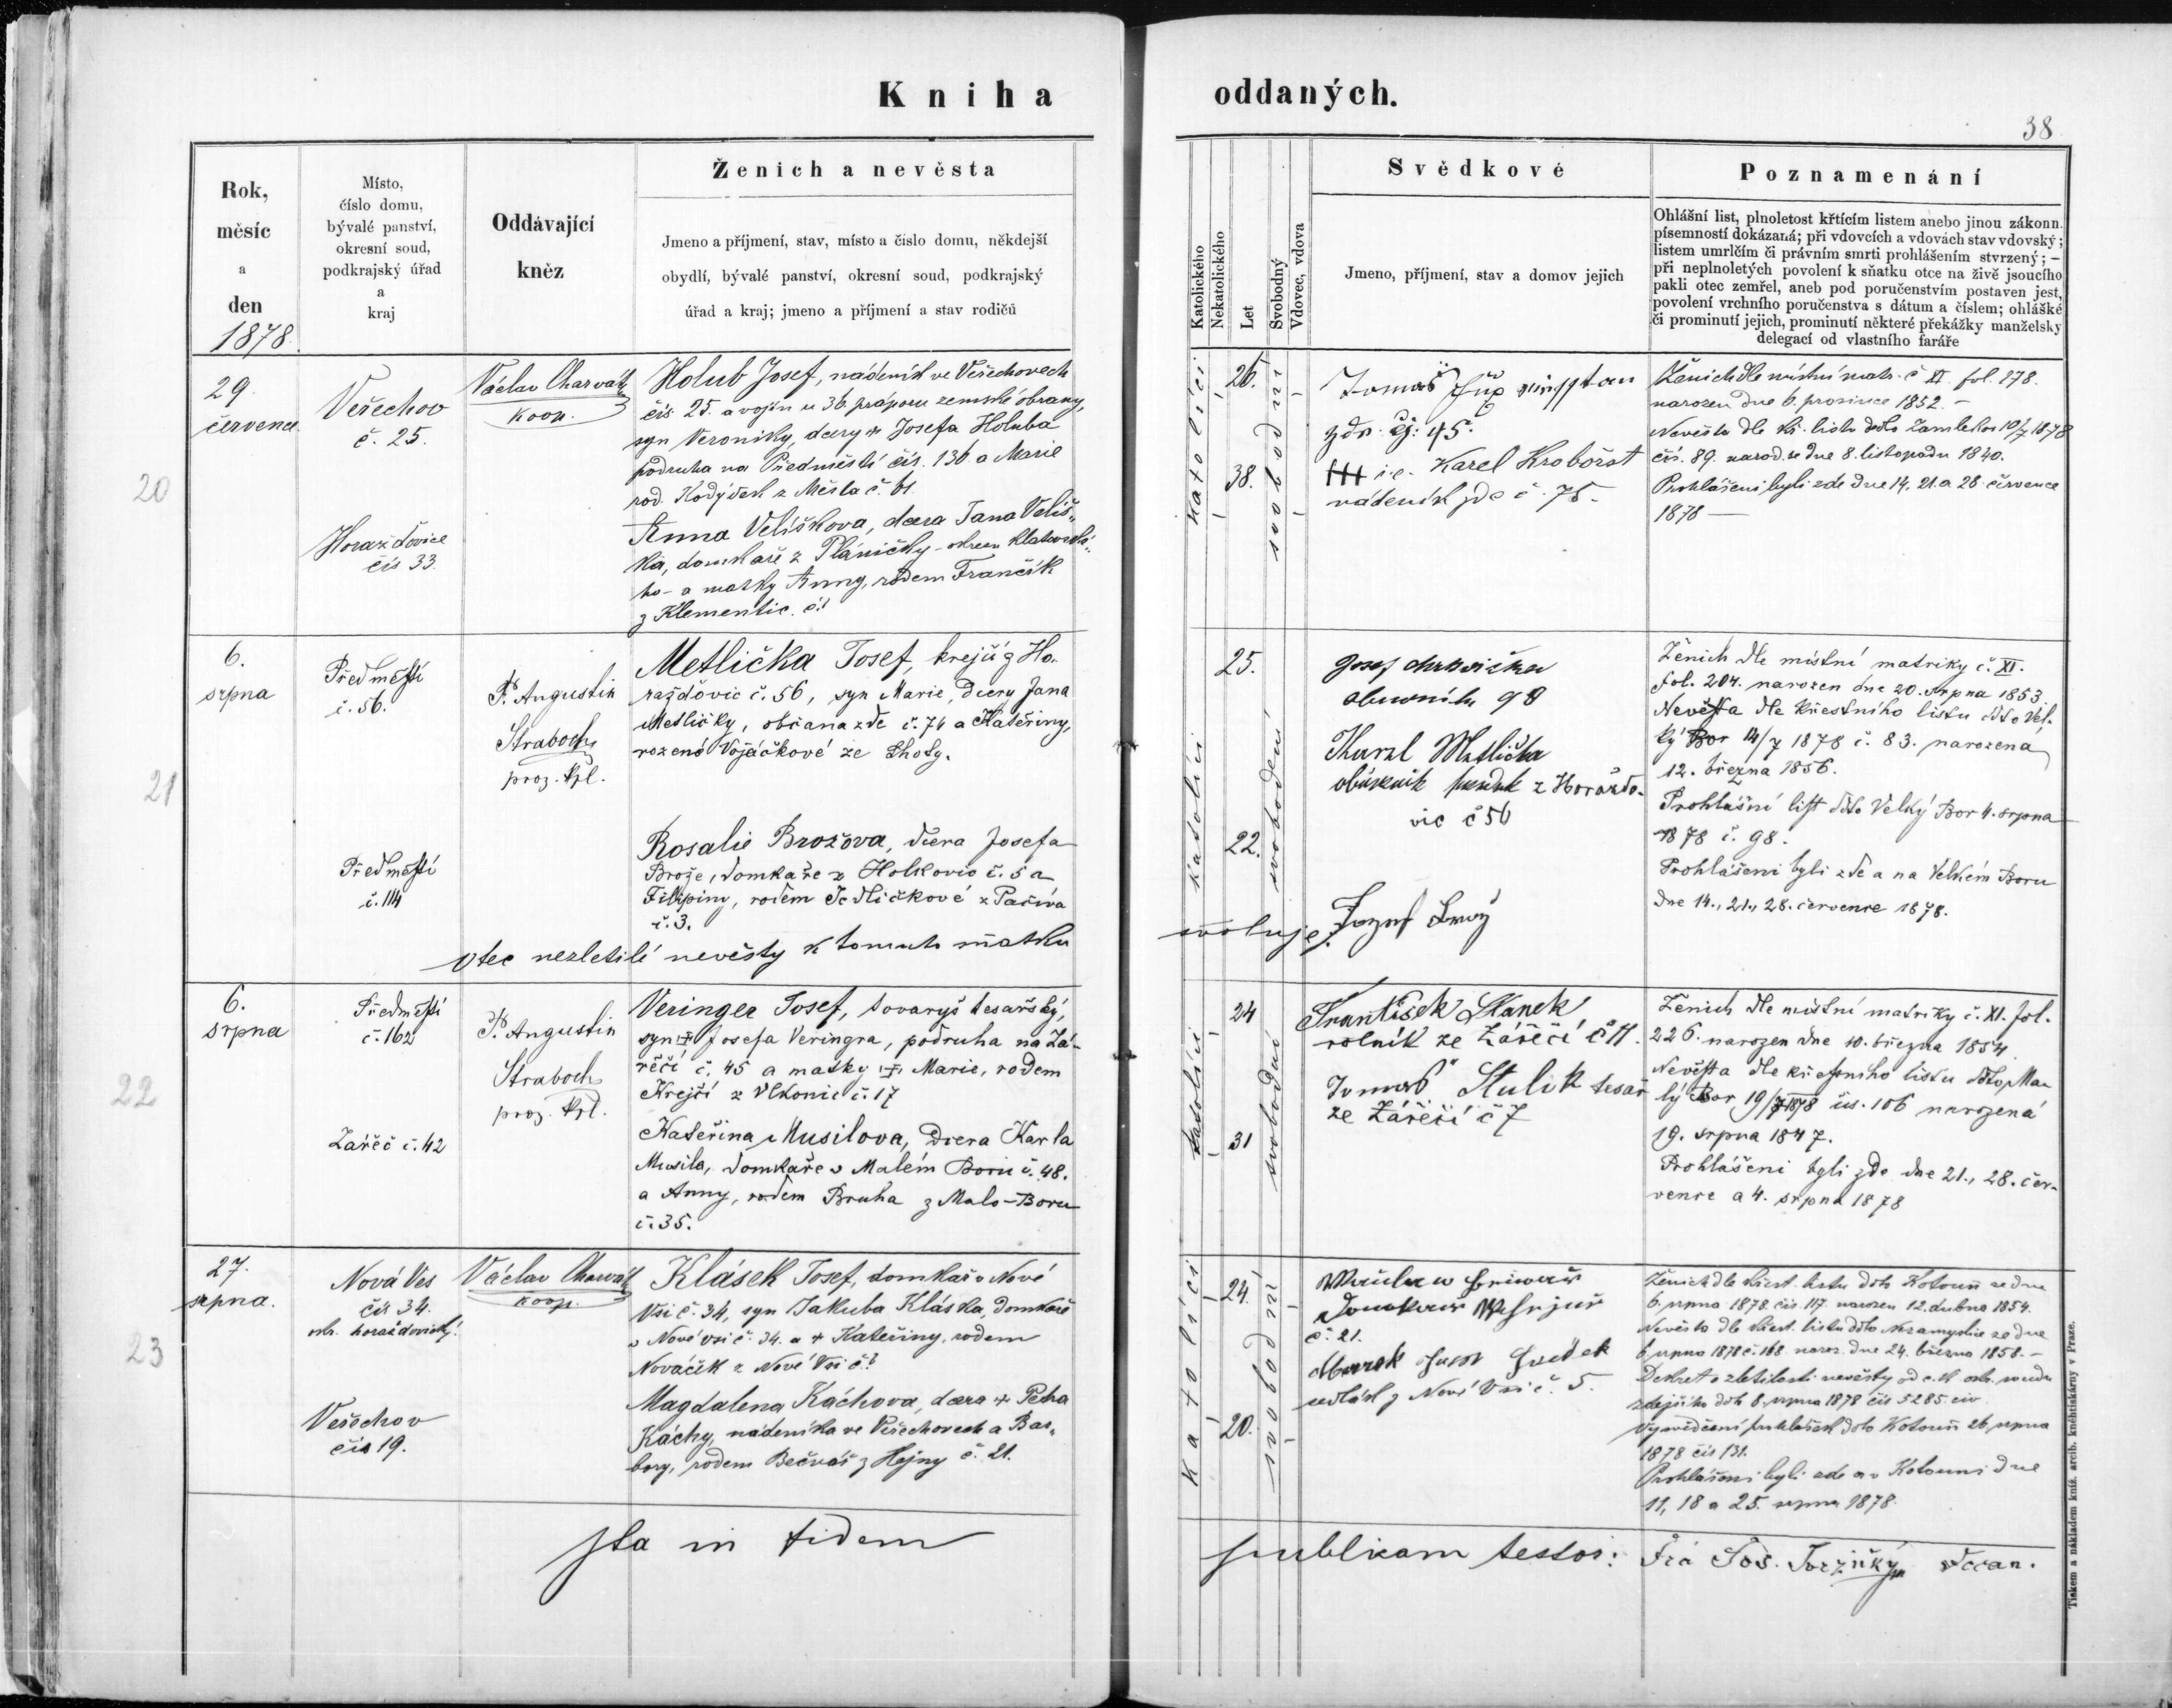 Kniha oddaných.
38
Rok,
měsíc
a
den
1878.
Místo,
číslo domu,
bývalé panství,
okresní soud,
podkrajský úřad
a
kraj
Oddávající
kněz
Ženich a nevěsta
Jmeno a příjmení, stav, místo a číslo domu, někdejší
obydlí, bývalé panství, okresní soud, podkrajský
úřad a kraj; jmeno a příjmení a stav rodičů
Katolického
Nekatolického
Let
Svobodný
Vdovec, vdova
Svědkové
Jmeno, příjmení, stav a domov jejich
Poznamenání
Ohlášní list, plnoletost křtícím listem anebo jinou zákonn.
písemností dokázaná; při vdovcích a vdovách stav vdovský;
listem umrlčím či právním smrti prohlášením stvrzený; –
při neplnoletých povolení k sňatku otce na živě jsoucího
pakli otec zemřel, aneb pod poručenstvím postaven jest,
povolení vrchního poručenstva s dátum a číslem; ohlášké
či prominutí jejich, prominutí některé překážky manželsky
delegací od vlastního faráře
20
29.
července
Veřechov
č. 25.
Horažďovice
čís 33.
Václav Charvát
koop.
Holub Josef, nádeník ve Veřechovech
čís. 25. a vojín u 36. práporu zemské obrany,
syn Veroniky, dcery + Josefa Holuba
podruha na Předměstí čís. 136 a Marie
rod. Kodýdek z Města č. 61.
Anna Velíškova, dcera Jana Velíš„
ka, domkaře z Pláničky - okresu Klatovské„
ho - a matky Anny, rodem Frančík
z Klementic. č.1
katolíci
26.
38.
svobodní
Tomáš
zde čj: 45.
+++ i.e. Karel Krobořat
nádeník zde č. 75.
Ženich dle místní matr. č XI. fol. 178.
narozen dne 6. prosince 1852. –
Nevěsta dle kř. listu ddto Zamlekov 10/7 1878
čís. 89. narod. se dne 8. listopadu 1840.
Prohlášeni byli zde dne 14, 21. a 28 července
1878 —
21
6.
srpna
Předměstí
č. 56.
Předměstí
č. 114
P. Augustin
Straboch
proz. kpl.
Metlička Josef, krejčí z Ho-
raždovic č. 56, syn Marie, dcery Jana
Metličky, občana zde č. 74 a Kateřiny,
rozené Vojáčkové ze Lhoty.
Rosalie Brožova, dcera Josefa
Brože, domkaře z Holkovic č. 5 a
Filipiny, rodem Jedličkové z Pačiva
č. 3.
Otec nezletilé nevěsty k tomuto sňatku
svoluje. Jozef Brož
katolíci
25.
22.
svobodni
Josef
obuvník 98
Karel Metlička
obuvník z Horažďo-
vic č 56
Ženich dle místní matriky č. XI.
fol. 204. narozen dne 20. srpna 1853.
Nevěsta dle křestního listu ddto Vel-
ký Bor 14/7 1878 č. 83. narozena
12. března 1856.
Prohlášní list ddto Velký Bor 4. srpna
1878 č. 98.
Prohlášeni byli zde a na Velkém Boru
dne 14., 21., 28. července 1878.
22
6.
srpna
Předměstí
č. 162
Zářéč č. 42
P. Augustin
Straboch
proz. kpl.
Veringer Josef, tovaryš tesařský,
syn + Josefa Veringra, podruha na Zá-
řečí č. 45 a matky + Marie, rodem
Krejčí z Vlkonic č. 17
Kateřina Musilova, dcera Karla
Musila, domkaře v Malém Boru č. 48.
a Anny, rodem Bruha z Malo-Boru
č. 35.
katolíci
24
31
svobodní
František Stanek
rolník ze Zářečí č 11.
Tomáš Stulik tesař
ze Zářečí č 7
Ženich dle místní matriky č. XI. fol.
226. narozen dne 10. března 1854
Nevěsta dle křestního listu ddto Ma-
lý Bor 19/7 1878 čís. 106 narozená
19. srpna 1847.
Prohlášeni byli zde dne 21., 28. čer-
vence a 4. srpna 1878
23
27.
srpna.
Nová Ves
čís 34.
okr. horažďovický.
Veřechov
čís 19.
Václav Charvát
koop.
Klásek Josef, domkař v Nové
Vsi č. 34, syn Jakuba Kláska, domkaře
v Nové Vsi č. 34. a + Kateřiny, rodem
Nováček z Nové Vsi č.
Magdalena Káchova, dcera + Petra
Káchy, nádeníka ve Veřechovech a Bar„
bory, rodem Bečvář z Hejny č. 21.
katolíci
24.
20.
svobodní
č. 21.
sedlák z Nové Vsi č. 5.
Ženich dle křest. listu ddto Kotouň ze dne
6. srpna 1878. čís. 117. narozen 12. dubna 1854.
Nevěsta dle křest. listu ddto Nezamyslice ze dne
6 srpna 1878 č. 168 naroz. dne 24. března 1858. –
Dekret o zletilosti nevěsty od c. k. okr. soudu
zdejšího ddto 8. srpna 1878 čís 5285. civ.
Vysvědčení prohlášek ddto Kotouň 26 srpna
1878 čís 131.
Prohlášeni byli zde a v Kotouni dne
11, 18 a 25. srpna 1878.
Ita in fidem publicam testor: děkan.
Tiskem a nákladem kníž. arcib. knihtiskárny v Praze.